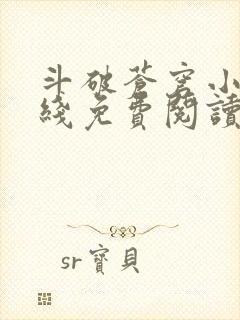 斗破蒼穹小
綫免費閱讀
sr寶貝